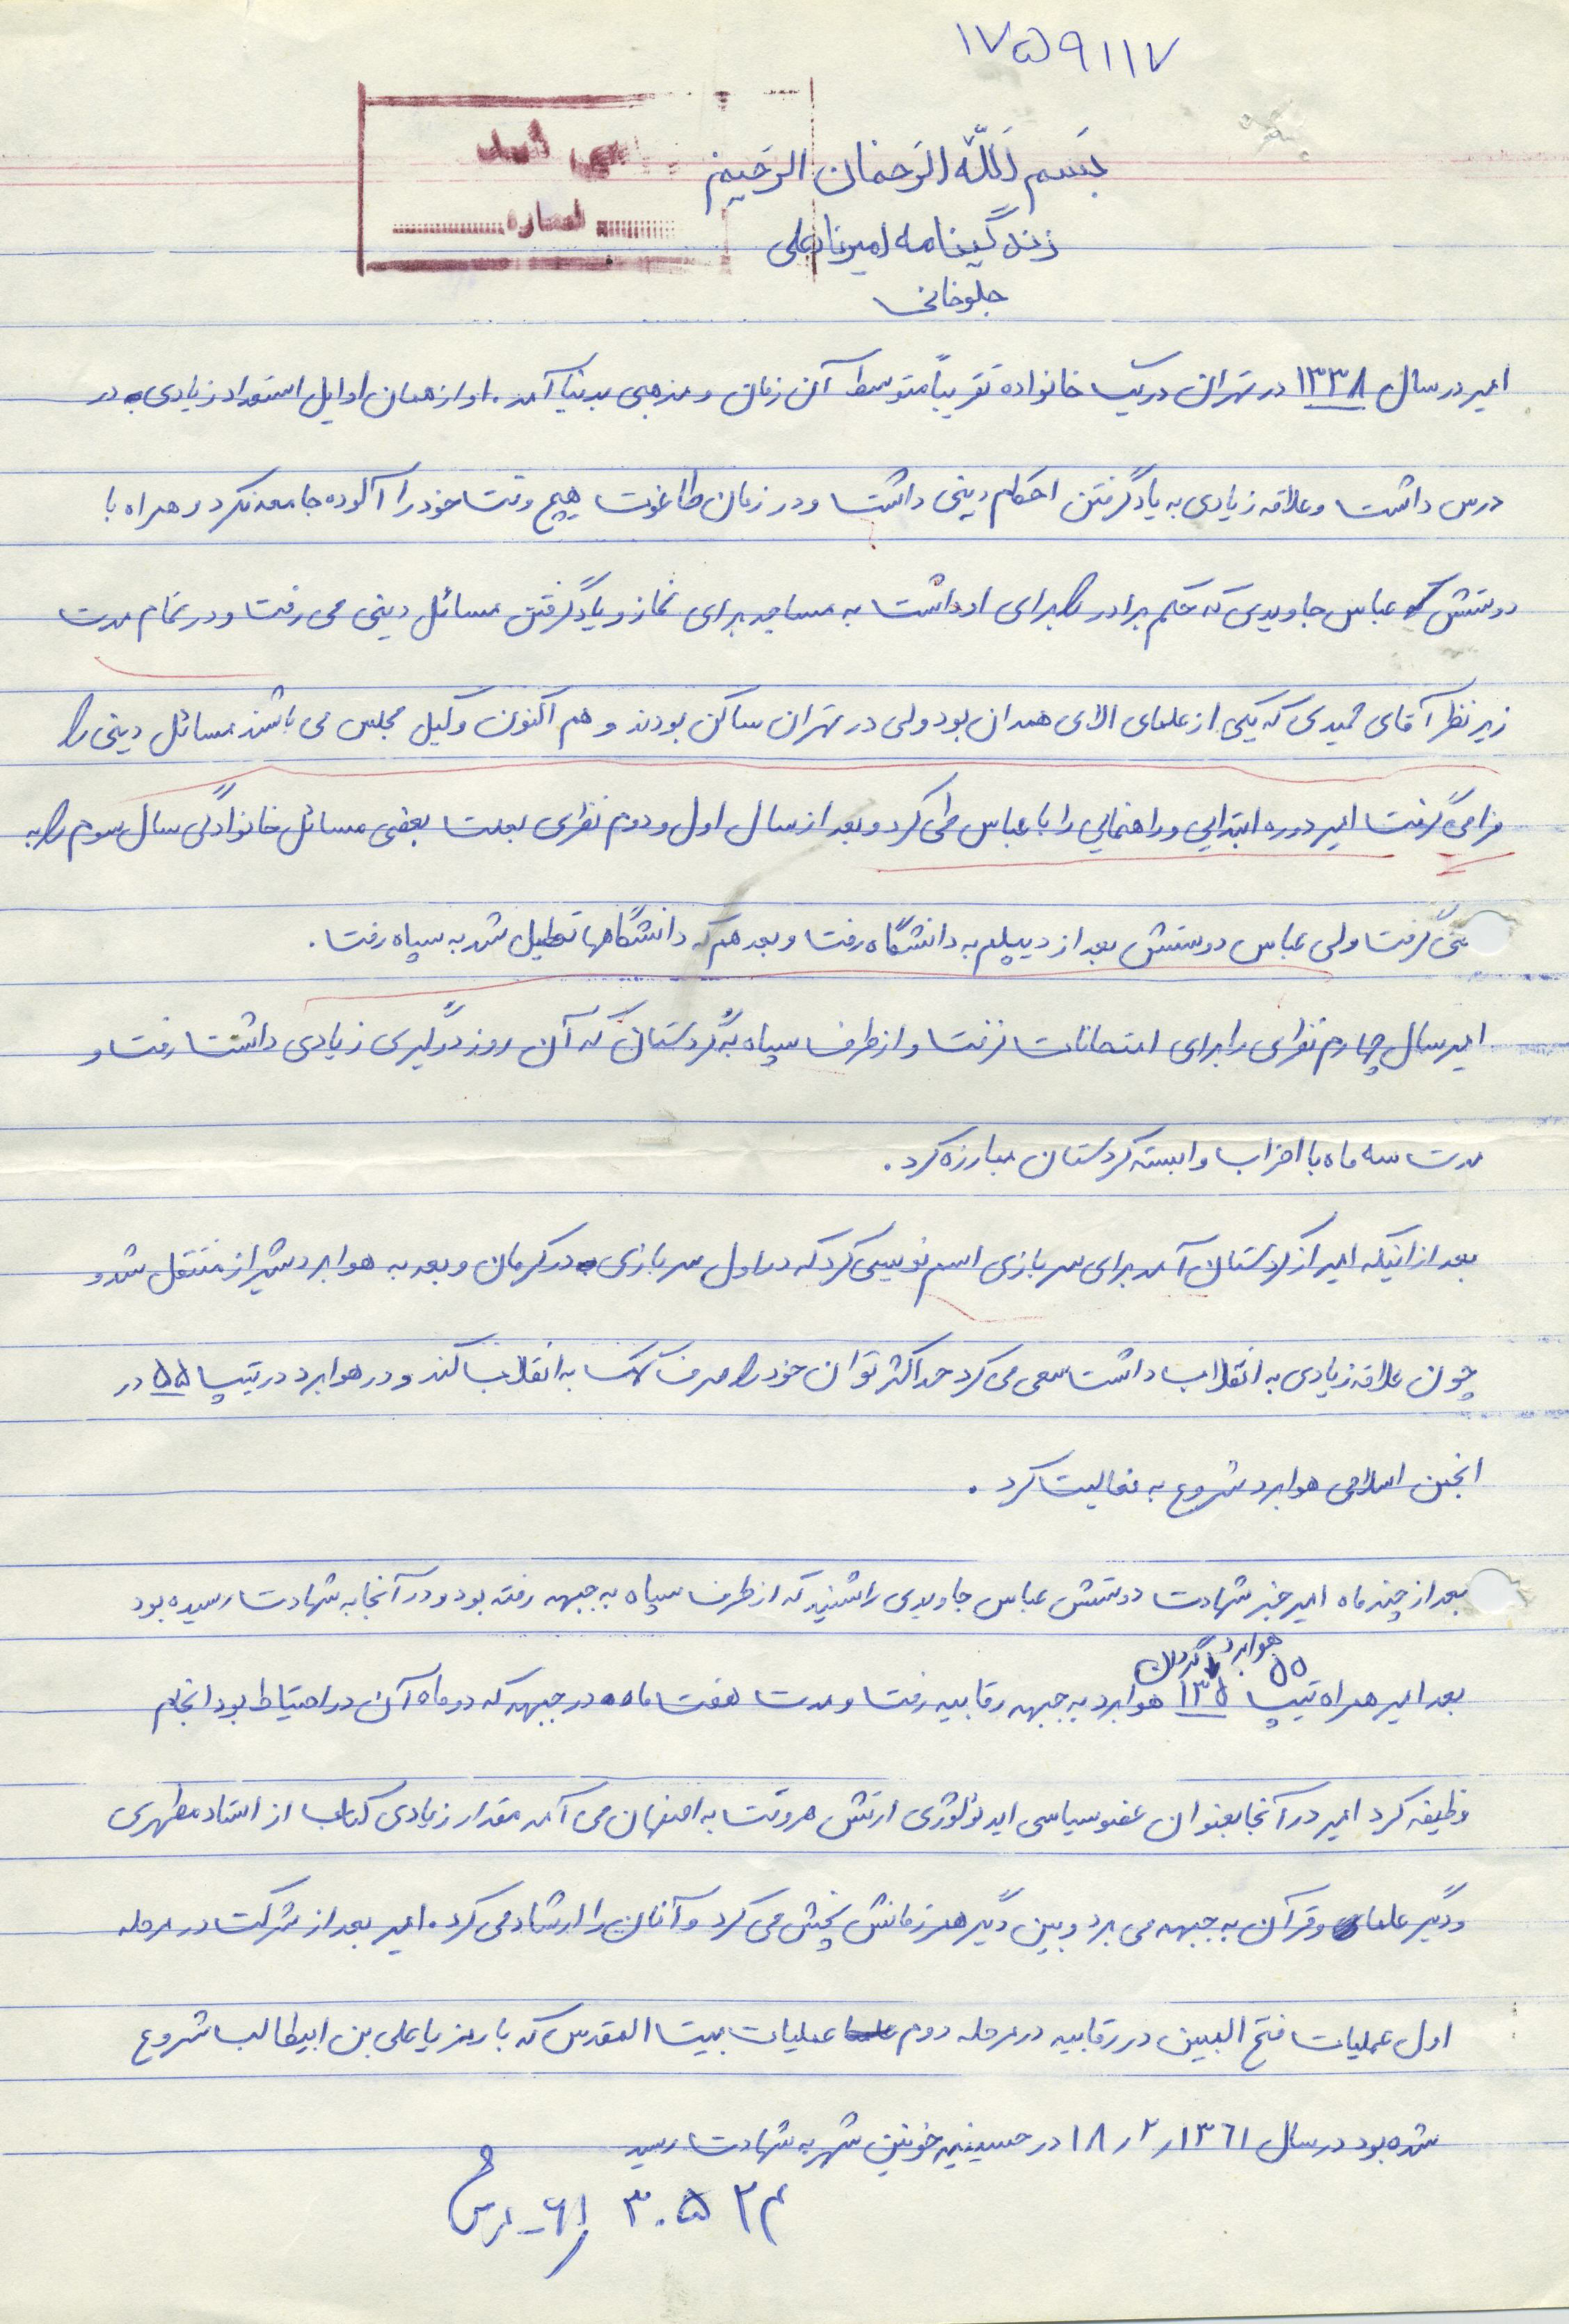 ۱۷۵۹۱۱۷
بسم الله الرحمان الرحیم
زندگینامه امیرنادعلی
جلوخانی
شماره
امیر در سال ۱۳۳۸ در تهران در یک خانواده تقریباً متوسط آن زمان و مذهبی بدنیا آمد. او از همان اوایل استعداد زیادی در
درس داشت و علاقه زیادی به یادگرفتن احکام دینی داشت و در زمان طاغوت هیچ وقت خود را آلوده جامعه نکرد و همراه با
دوستش عباس جاویدی که حکم برادر را برای او داشت به مساجد برای نماز و یادگرفتن مسائل دینی می رفت و در تمام مدت
زیر نظر آقای حمیدی که یکی از علمای الای همدان بود ولی در تهران ساکن بودند و هم اکنون وکیل مجلس می باشند مسائل دینی را
فرا می گرفت امیر دوره ابتدایی و راهنمایی را با عباس طی کرد و بعد از سال اول و دوم نظری بعلت بعضی مسائل خانوادگی سال سوم را به
گرفت ولی عباس دوستش بعد از دیپلم به دانشگاه رفت و بعد هم که دانشگاهها تعطیل شد به سپاه رفت.
امیر سال چهارم نظری را برای امتحانات نرفت و از طرف سپاه به کردستان که آن روز درگیری زیادی داشت رفت و
مدت سه ماه با احزاب وابسته کردستان مبارزه کرد.
بعد از اینکه امیر از کردستان آمد برای سربازی اسم نویسی کرد که در اول سربازی در کرمان و بعد به هوابرد شیراز منتقل شد و
چون علاقه زیادی به انقلاب داشت سعی می کرد حداکثر توان خود را صرف کمک به انقلاب کند و در هوابرد در تیپ ۵۵ در
انجمن اسلامی هوابرد شروع به فعالیت کرد.
بعد از چند ماه امیر خبر شهادت دوستش عباس جاویدی را شنید که از طرف سپاه به جبهه رفته بود و در آنجا به شهادت رسیده بود
۵۵ هوابرد گردان
بعد امیر همراه تیپ ۱۳۵ هوابرد به جبهه رقابیه رفت و مدت هفت ماه در جبهه که دو ماه آن در احتیاط بود انجام
وظیفه کرد امیر در آنجا بعنوان عضو سیاسی ایدئولوژی ارتش هروقت به اصفهان می آمد مقدار زیادی کتاب از استاد مطهری
و دیگر علمای و قرآن به جبهه می برد و بین دیگر همرزمانش پخش می کرد و آنان را ارشاد می کرد. امیر بعد از شرکت در مرحله
اول عملیات فتح المبین در رقابیه در مرحله دوم عملیات بیت المقدس که با رمز یا علی بن ابیطالب شروع
شده بود در سال ۱۳۶۱ر۲ر۱۸ در حسینیه خونین شهر به شهادت رسید